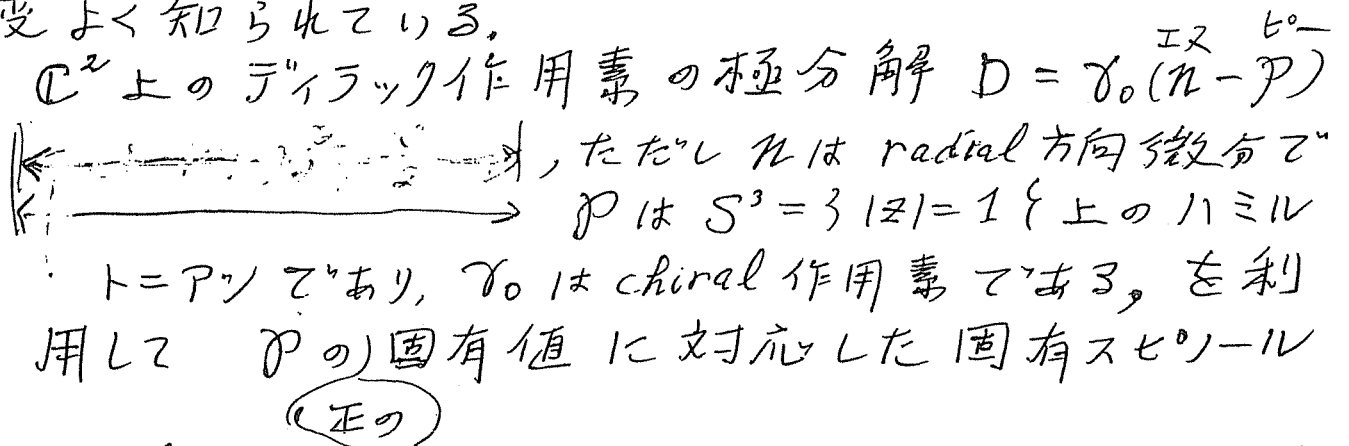 変よく知られている.
エヌ ピー
C² 上のディラック作用素の極分解 D = γ₀(n - P)
, ただし n は radial 方向微分で
P は S³ = {|z| = 1} 上のハミル
トニアンであり, γ₀ は chiral 作用素である。を利
用して P の固有値に対応した固有スピノール
正の